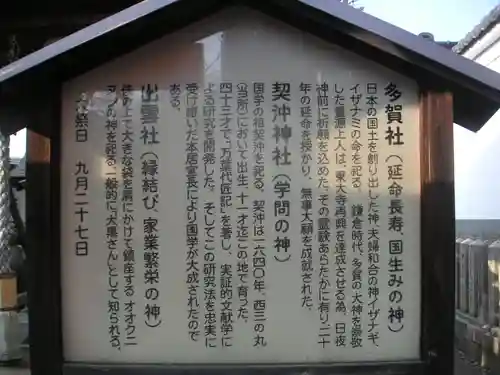 多賀社（延命長寿、国生みの神）
日本の国土を創り出した神、夫婦和合の神イザナギ、
イザナミの命を祀る。鎌倉時代、多賀の大神を崇敬
した重源上人は、東大寺再興を達成させる為、日夜
神前に祈願を込めた。その霊験あらたかに有り二十
年の延命を授かり、無事大願を成就された。
契沖神社（学問の神）
国学の祖契沖を祀る。契沖は一六四〇年、西三の丸
（当所）において出生、十一才迄この地で育った。
四十三才で、「万葉代匠記」を著し、実証的文献学に
よる研究を開発した。そしてこの研究法を忠実に
受け継いだ本居宣長により国学が大成されたので
ある。
出雲社（縁結び、家業繁栄の神）
俵の上で大きな袋を肩にかけて鎮座する オオクニ
ヌシの神を祀る一般的に「大黒さん」として知られる。
大祭日　九月二十七日